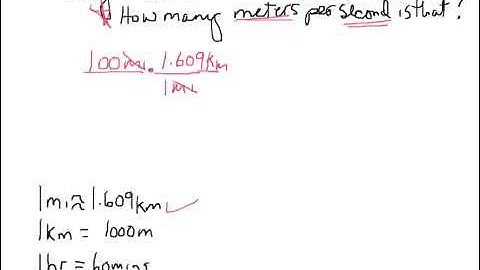 How many meters per second is that?
100mi · 1.609km
1mi
1mi ≈ 1.609km
1km = 1000m
1hr = 60mins